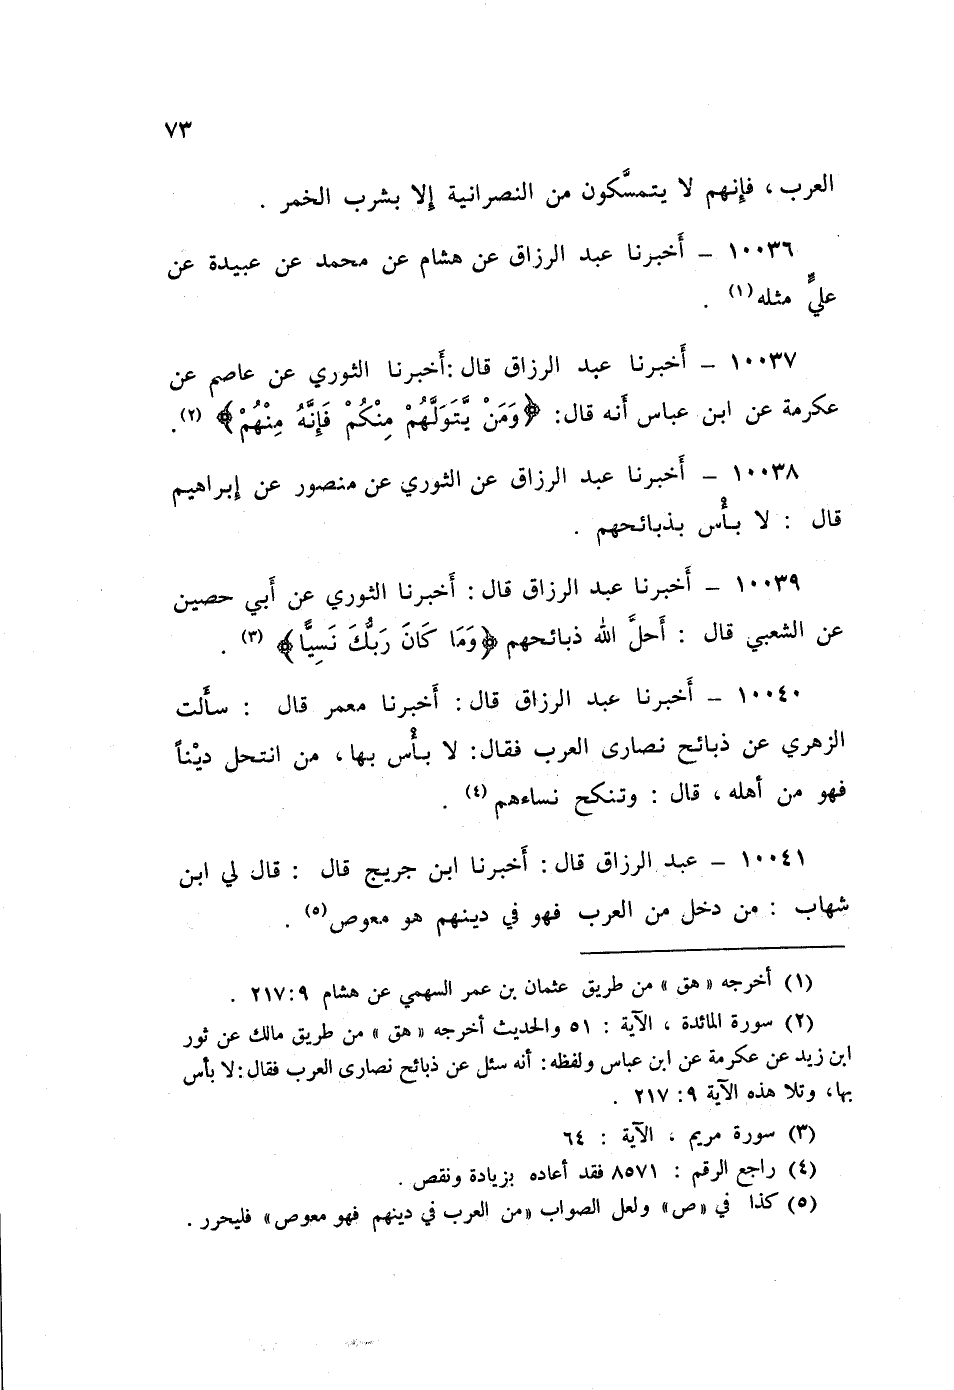 ٧٣
العرب ، فإنهم لا يتمسَّكون من النصرانية إلا بشرب الخمر .
١٠٠٣٦ – أَخبرنا عبد الرزاق عن هشام عن محمد عن عبيدة عن
عليٍّ مثله(١) .
١٠٠٣٧ – أَخبرنا عبد الرزاق قال :أَخبرنا الثوري عن عاصم عن
عكرمة عن ابن عباس أَنه قال: ﴿وَمَنْ يَّتَوَلَّهُمْ مِنْكُمْ فَإِنَّهُ مِنْهُمْ﴾ (٢).
١٠٠٣٨ – أَخبرنا عبد الرزاق عن الثوري عن منصور عن إبراهيم
قال : لا بأْس بذبائحهم .
١٠٠٣٩ – أَخبرنا عبد الرزاق قال : أَخبرنا الثوري عن أَبي حصين
عن الشعبي قال : أَحلَّ الله ذبائحهم ﴿وَمَا كَانَ رَبُّكَ نَسِيًّا﴾ (٣) .
١٠٠٤٠ – أَخبرنا عبد الرزاق قال : أَخبرنا معمر قال : سأَلت
الزهري عن ذبائح نصارى العرب فقال: لا بأْس بها ، من انتحل ديْناً
فهو من أهله ، قال : وتنكح نساءهم (٤) .
١٠٠٤١ – عبد الرزاق قال : أَخبرنا ابن جريج قال : قال لي ابن
شهاب : من دخل من العرب فهو في دينهم هو معوص(٥) .
(١) أخرجه « هق » من طريق عثمان بن عمر السهمي عن هشام ٩ : ٢١٧ .
(٢) سورة المائدة ، الآية : ٥١ والحديث أخرجه « هق » من طريق مالك عن ثور
ابن زيد عن عكرمة عن ابن عباس ولفظه : أنه سئل عن ذبائح نصارى العرب فقال : لا بأس
بها ، وتلا هذه الآية ٩ : ٢١٧ .
(٣) سورة مريم ، الآية : ٦٤
(٤) راجع الرقم : ٨٥٧١ فقد أعاده بزيادة ونقص .
(٥) كذا في «ص» ولعل الصواب «من العرب في دينهم فهو معوص» فليحرر .